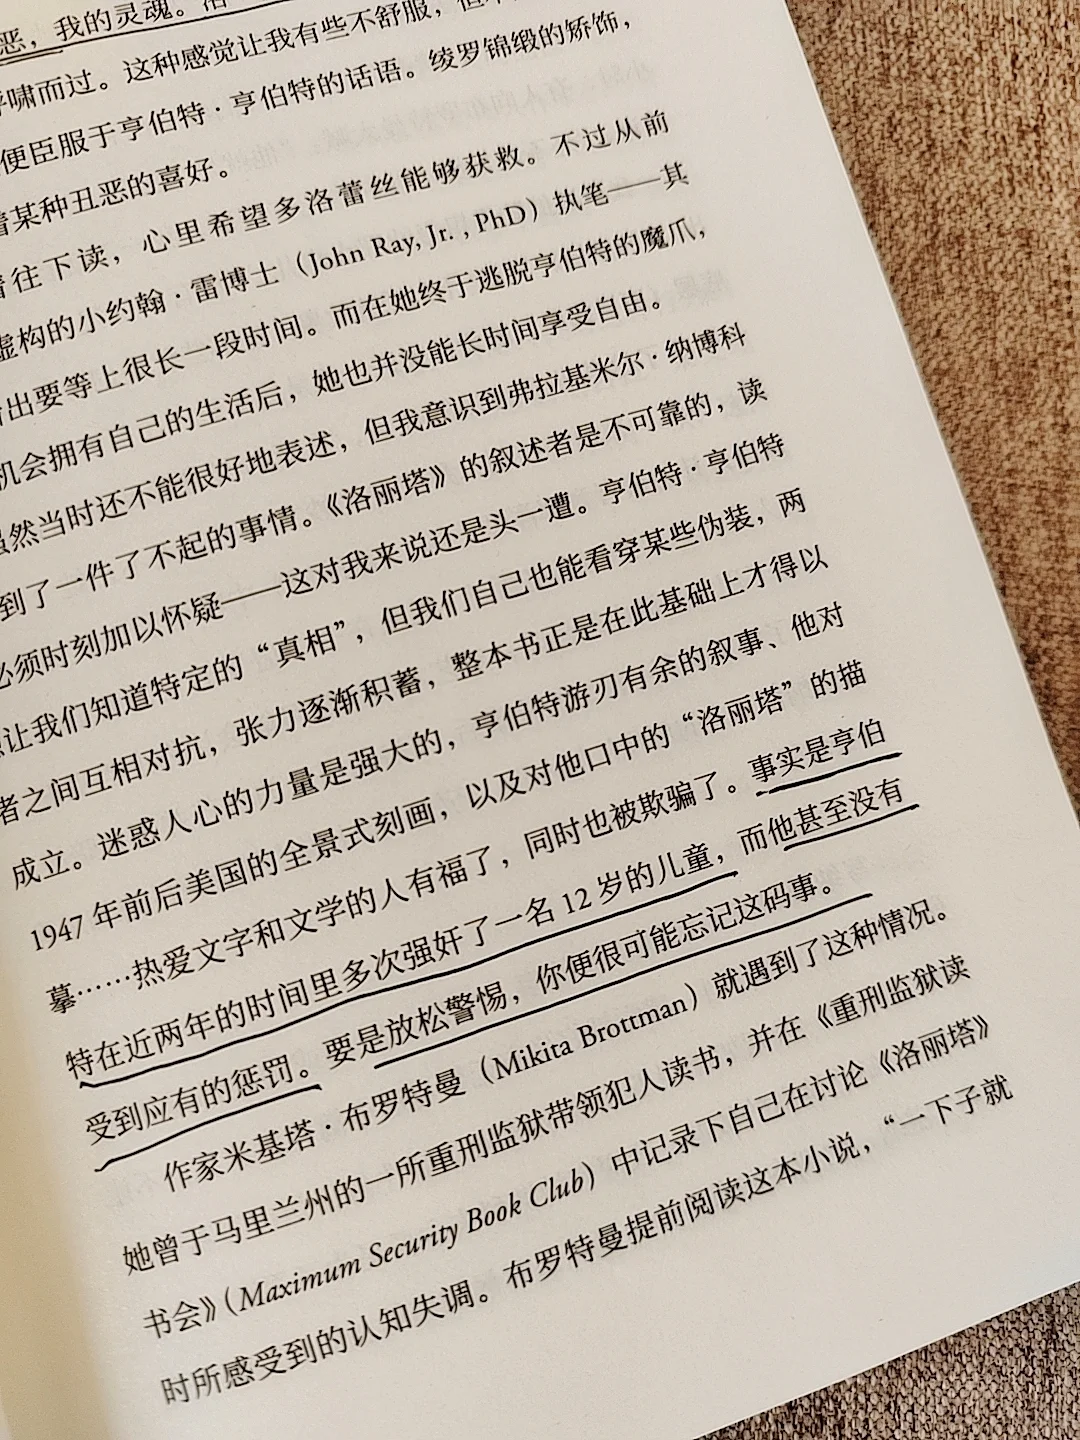 恶，我的灵魂。洛
呼啸而过。这种感觉让我有些不舒服，但
便臣服于亨伯特·亨伯特的话语。绫罗锦缎的矫饰，
着某种丑恶的喜好。
着往下读，心里希望多洛蕾丝能够获救。不过从前
虚构的小约翰·雷博士（John Ray, Jr. , PhD）执笔——其
出要等上很长一段时间。而在她终于逃脱亨伯特的魔爪，
机会拥有自己的生活后，她也并没能长时间享受自由。
虽然当时还不能很好地表述，但我意识到弗拉基米尔·纳博科
到了一件了不起的事情。《洛丽塔》的叙述者是不可靠的，读
必须时刻加以怀疑——这对我来说还是头一遭。亨伯特·亨伯特
让我们知道特定的“真相”，但我们自己也能看穿某些伪装，两
者之间互相对抗，张力逐渐积蓄，整本书正是在此基础上才得以
成立。迷惑人心的力量是强大的，亨伯特游刃有余的叙事、他对
1947 年前后美国的全景式刻画，以及对他口中的“洛丽塔”的描
摹……热爱文字和文学的人有福了，同时也被欺骗了。事实是亨伯
特在近两年的时间里多次强奸了一名 12 岁的儿童，而他甚至没有
受到应有的惩罚。要是放松警惕，你便很可能忘记这码事。
作家米基塔·布罗特曼（Mikita Brottman）就遇到了这种情况。
她曾于马里兰州的一所重刑监狱带领犯人读书，并在《重刑监狱读
书会》（Maximum Security Book Club）中记录下自己在讨论《洛丽塔》
时所感受到的认知失调。布罗特曼提前阅读这本小说，“一下子就